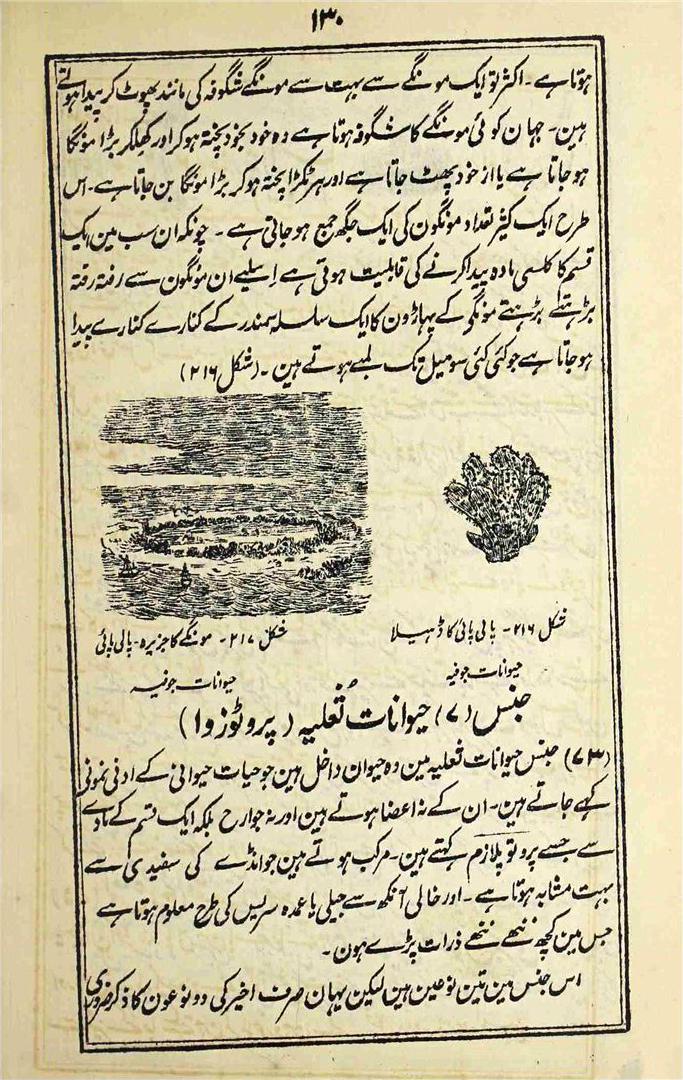 ۱۳۰
ہوتا ہے۔ اکثر تو ایک مونگے سے بہت سے مونگے شگوفہ کی مانند پھوٹ کر پیدا ہوتے
ہین۔ جہان کوئی مونگے کا شگوفہ ہوتا ہے وہ خود بخود پختہ ہو کر اور کھلکر بڑا مونگا
ہو جاتا ہے یا از خود پھٹ جاتا ہے اور ہر ٹکڑا پختہ ہو کر بڑا مونگا بن جاتا ہے۔ اس
طرح ایک کثیر تعداد مونگون کی ایک جگھ جمع ہو جاتی ہے۔ چونکہ ان سب مین ایک
قسم کا کلسی مادہ پیدا کرنے کی قابلیت ہوتی ہے اسلیے ان مونگون سے رفتہ رفتہ
بڑہتے بڑہتے مونگی کے پہاڑون کا ایک سلسلہ سمندر کے کنارے کنارے پیدا
ہو جاتا ہے جو کئی کئی سو میل تک لمبے ہوتے ہین۔ (شکل ۲۱۶)
شکل ۲۱۶۔ پالی پائی کا ڈہیلا
حیوانات جوفیہ
شکل ۲۱۷۔ مونگے کا جزیرہ۔ پالی پائی
حیوانات جوفیہ
جنس (۷) حیوانات نعلیہ (پروٹوزوا)
(۷۳) جنس حیوانات نعلیہ مین وہ حیوان داخل ہین جو حیات حیوانی کے ادنی نمونی
کہے جاتے ہین۔ ان کے نہ اعضا ہوتے ہین اور نہ جوارح بلکہ ایک قسم کے مادے
سے جسے پروٹوپلازم کہتے ہین۔ مرکب ہوتے ہین جو انڈے کی سفیدی سے
بہت مشابہ ہوتا ہے۔ اور خالی آنکھ سے جیلی یا عمدہ سریس کی طرح معلوم ہوتا ہے
جس مین کچھ ننھے ننھے ذرات پڑے ہون۔
اس جنس مین تین نوعین ہین لیکن یہان صرف اخیر کی دو نوعون کا ذکر ضروری